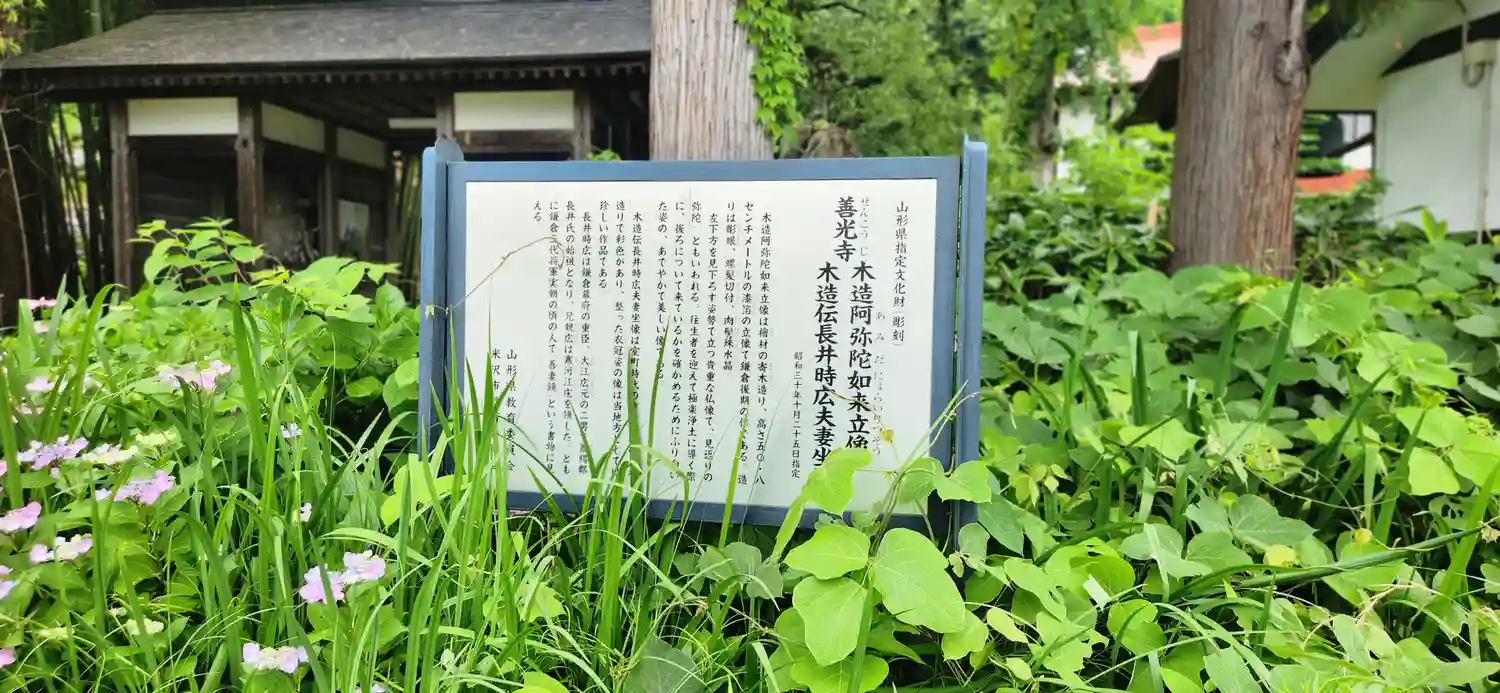 山形県指定文化財(彫刻)
せんこうじ
善光寺
あみだにょらいりゅうぞう
木造阿弥陀如来立像
木造伝長井時広夫妻坐
昭和三十年十月二十五日指定
木造阿弥陀如来立像は檜材の寄木造り、高さ五〇・八
センチメートルの漆箔の立像で鎌倉後期の作である。造
りは彫眼、螺髪切付、肉髻珠水晶
左下方を見下ろす姿勢で立つ貴重な仏像で、見返りの
弥陀 ともいわれる。往生者を迎えて極楽浄土に導く際
に、後ろについて来ているかを確かめるためにふり
た姿の、あでやかで美しい像である。
木造伝長井時広夫妻坐像は室町時代の
造りで彩色があり、整った衣冠姿の像は当地方
珍しい作品である
長井時広は鎌倉幕府の重臣、大江広元の二男
長井氏の始祖となり、兄親広は寒河江庄を領した。とも
に鎌倉三代将軍実朝の頃の人で 吾妻鏡 という書物に見
える
山形県教育委員会
米沢市